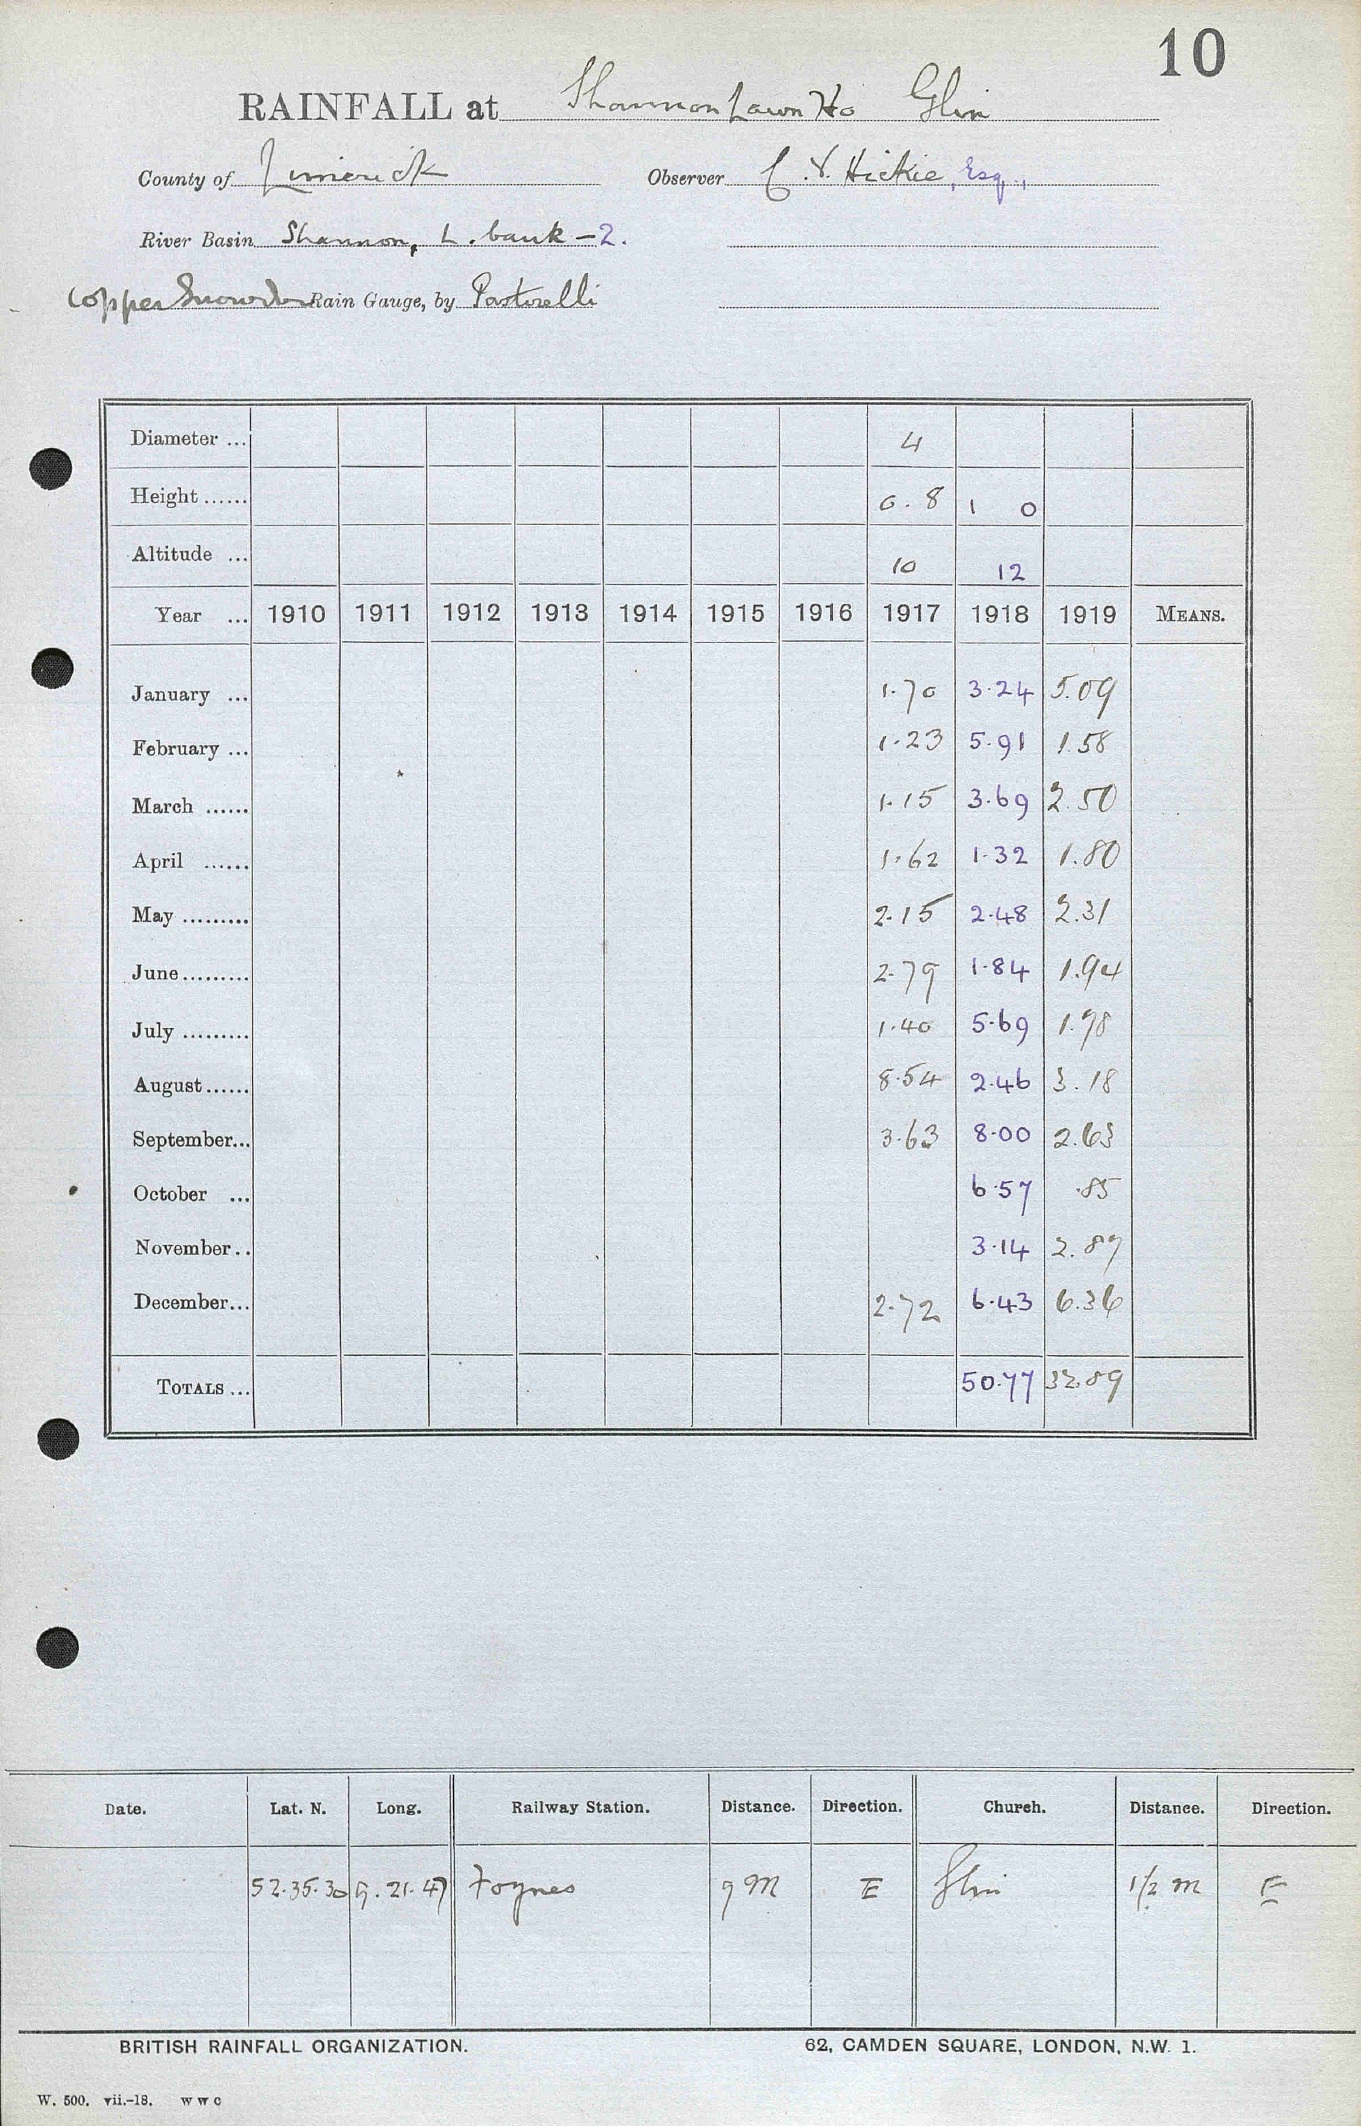 10
RAINFALL at Shannon Lawn Ho Glin
County of Limerick Observer C. V. Hickie, Esq.,
River Basin Shannon, L. bank - 2.
Copper Snowdon Rain Gauge, by Pastorelli
Diameter ... 4
Height ...... 0.8 1 0
Altitude ... 10 12
Year ... 1910 1911 1912 1913 1914 1915 1916 1917 1918 1919 MEANS.
January ... 1.70 3.24 5.09
February ... 1.23 5.91 1.58
March ...... 1.15 3.69 2.50
April ...... 1.62 1.32 1.80
May ......... 2.15 2.48 2.31
June ......... 2.79 1.84 1.94
July ......... 1.40 5.69 1.78
August ...... 8.54 2.46 3.18
September... 3.63 8.00 2.63
October ... 6.57 .85
November.. 3.14 2.87
December... 2.72 6.43 6.36
TOTALS ... 50.77 32.89
Date. Lat. N. Long. Railway Station. Distance. Direction. Church. Distance. Direction.
52.35.30 9.21.47 Foynes 9 M E Glin 1/2 m E
BRITISH RAINFALL ORGANIZATION. 62, CAMDEN SQUARE, LONDON, N.W. 1.
W. 500. vii.-18. W W C